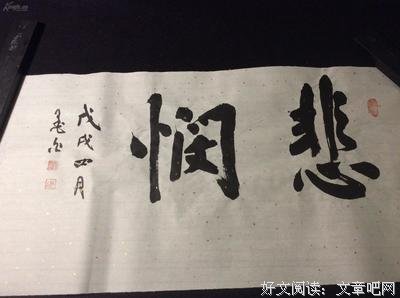 悲悯
戊戌四月
好文阅读：文章吧网